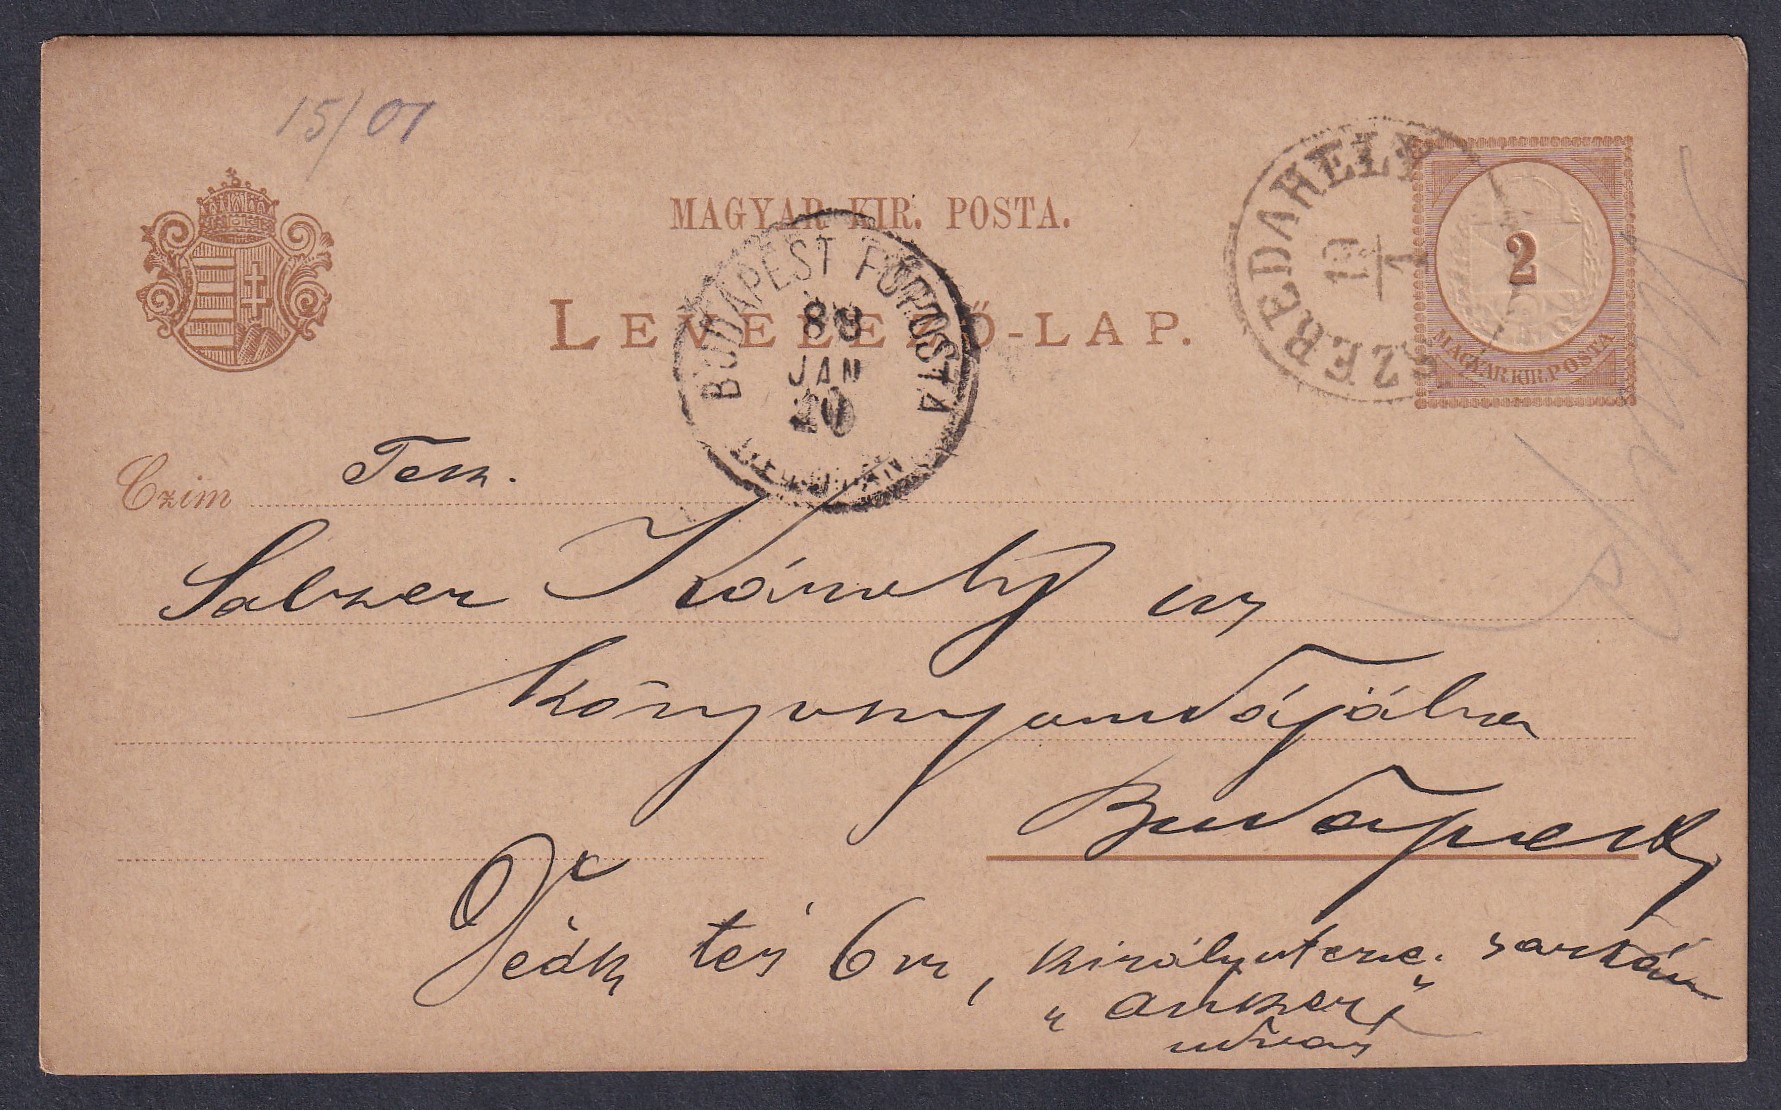 15/01
MAGYAR KIR. POSTA.
LEVELEZŐ-LAP.
SZEREDAHELY
19/1
2
MAGYAR KIR. POSTA
BUDAPEST FŐPOSTA
88
JAN
20
Czim
Tek.
Salzer Károly úr
könyvnyomdájába
Budapest
tér 6 sz, király utcza sarkán
„Anker"
udvar